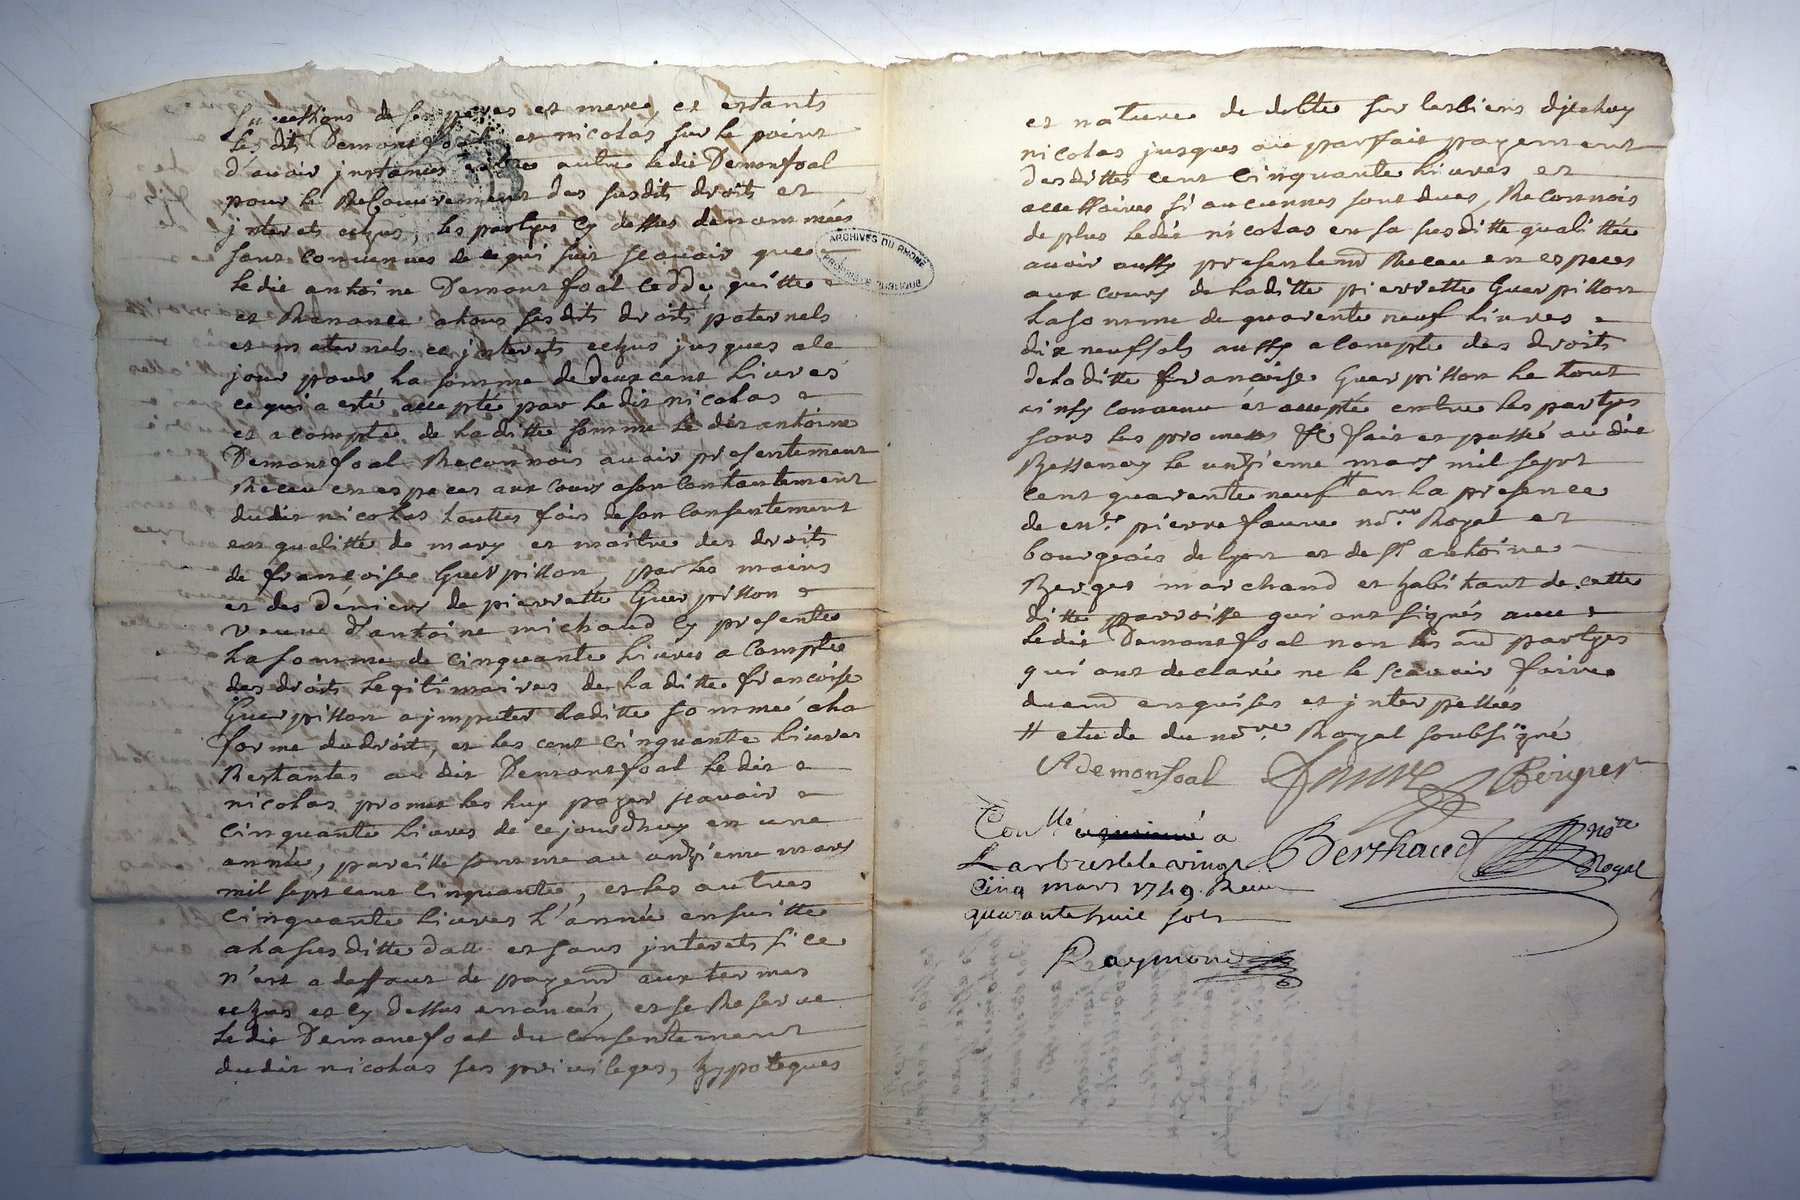 successions de ses peres et meres, et estants
les dits Demontfoal et nicolas sur le point
d'avoir jnstances entre autre ledit Demonfoal
pour le Recouvrement des susdits droits et
jnterets echus, les partyes cy dessus denommées
sont convenues de ce qui suit scavoir que
ledit antoine Demontfoal cedde quitte
et Renonce a tous sesdits droits paternels
et maternels et jnterets echus jusques a le
jour pour la somme de deux cent livres
ce qui a esté accepté par ledit nicolas
et a compte de la ditte somme le dit antoine
Demontfoal Reconnois avoir presentement
Receu en especes aux cours a son contantement
dudit nicolas touttes fois de son consentement
en qualitté de mary et maitre des droits
de françoise Guerpillon, par les mains
et des deniers de pierrette Guerpillon
veuve d'antoine michaud cy presente
la somme de cinquante livres a compte
des droits legitimaires de la ditte françoise
Guerpillon a jmputer laditte somme a la
forme du droit, et les cent cinquante livres
Restantes au dit Demontfoal ledit
nicolas promet les luy payer scavoir
cinquante livres de ce jourdhuy en une
année, pareille somme au onzieme mars
mil sept cent cinquante, et les autres
cinquante livres l'année ensuitte
a la susditte datt et sans jnterets si ce
n'est a deffaut de payemt aux termes
echus et cy dessus enoncés, et se Reserve
ledit Demontfoal du consentement
dudit nicolas ses privileges, hypoteques
ARCHIVES DU RHONE
PROPRIÉTÉ PUBLIQUE
et nature de debte sur les biens djceluy
nicolas jusques au parfait payement
desdittes cent cinquante livres et
accessoires si aucunnes sont dues, Reconnois
de plus ledit nicolas en sa susditte qualittée
avoir aussy presentemt Receu en especes
aux cours de laditte pierrette Guerpillon
la somme de quarente neuf livres
dix neuf sols aussy a compte des droits
de laditte françoise Guerpillon le tout
ainsy convenu et accepté entre les partyes
sous les promesses &c fait et passé audit
Bessenay le unzieme mars mil sept
cent quarente neuf # en la presence
de pierre faure Royal et
bourgeois de lyon et de St antoine
Berger marchand et habitant de cette
ditte parroisse qui ont signés avec
ledit Demontfoal non les aud partyes
qui ont declaré ne le scavoir faire
duemt enquises et jnterpellées
# etude du nore Royal soubsigné
A demonfoal faure Berger
Berthaud note Royal
Conlle a
Larbresle le vingt
cinq mars 1749 Receu
quarante huit sols
Raymond